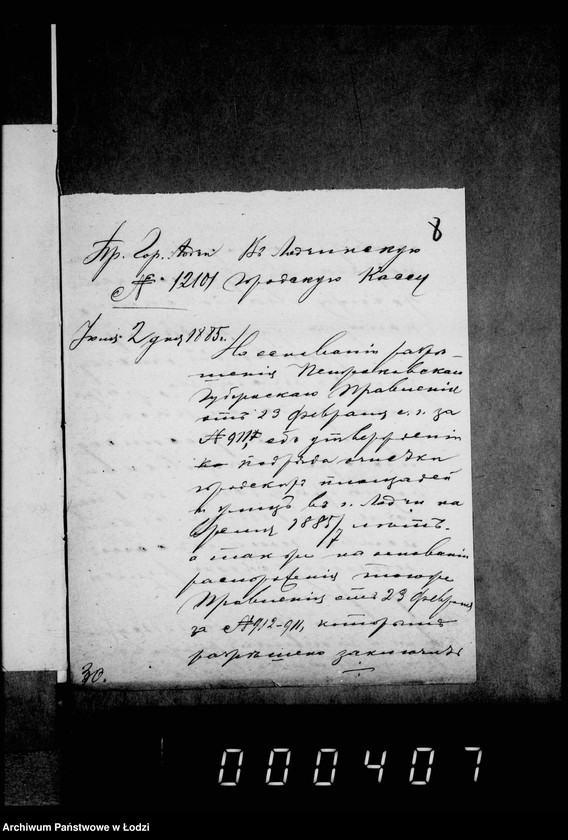 8
Пр. Гор. Лодзи Въ Лодзинскую
№ 12101 Городскую Кассу
Іюня 2 дня 1885 г.
На основаніи разрѣ-
шенія Петроковскаго
Губернскаго Правленія
отъ 23 Февраля с. г. за
№ 911, объ утвержденіи
подряда очистки
городскихъ площадей
и улицъ въ г. Лодзи на
время 1885/7 лѣтъ,
а также на основаніи
распоряженія того же
Правленія отъ 23 Февраля
за № 912-911, которымъ
разрѣшено заключить
30.
000407
Archiwum Państwowe w Łodzi